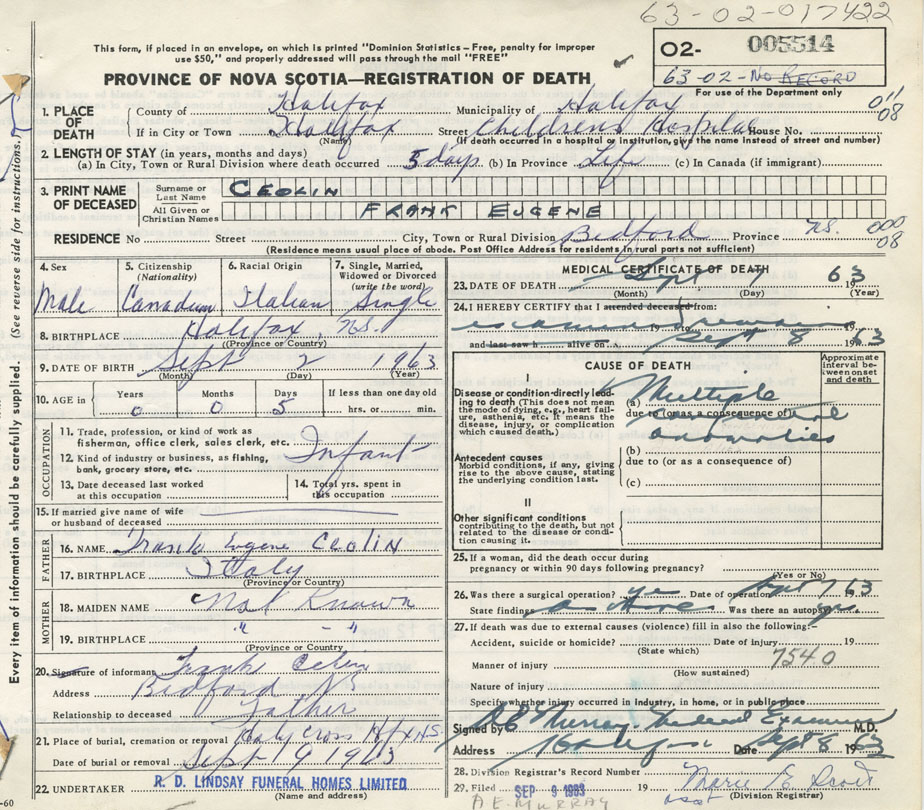 63-02-017422
This form, if placed in an envelope, on which is printed "Dominion Statistics—Free, penalty for improper
use $50," and properly addressed will pass through the mail "FREE"
PROVINCE OF NOVA SCOTIA—REGISTRATION OF DEATH
02- 005514
63-02-No RECORD
For use of the Department only
011
08
1. PLACE OF DEATH
County of Halifax Municipality of Halifax
If in City or Town Halifax Street Childrens Hospital House No.
(Name) (If death occurred in a hospital or institution, give the name instead of street and number)
2. LENGTH OF STAY (in years, months and days)
(a) In City, Town or Rural Division where death occurred 5 days (b) In Province Life (c) In Canada (if immigrant)
3. PRINT NAME OF DECEASED
Surname or Last Name CEOLIN
All Given or Christian Names FRANK EUGENE
RESIDENCE No Street City, Town or Rural Division Bedford Province N.S. 000
08
(Residence means usual place of abode. Post Office Address for residents in rural parts not sufficient)
4. Sex 5. Citizenship (Nationality) 6. Racial Origin 7. Single, Married, Widowed or Divorced (write the word)
Male Canadian Italian Single
8. BIRTHPLACE Halifax, N.S.
(Province or Country)
9. DATE OF BIRTH Sept 2 1963
(Month) (Day) (Year)
10. AGE in Years Months Days If less than one day old
0 0 5 hrs. or min.
OCCUPATION
11. Trade, profession, or kind of work as
fisherman, office clerk, sales clerk, etc. Infant
12. Kind of industry or business, as fishing,
bank, grocery store, etc.
13. Date deceased last worked
at this occupation
14. Total yrs. spent in
this occupation
15. If married give name of wife
or husband of deceased
FATHER
16. NAME Frank Eugene CEOLIN
17. BIRTHPLACE Italy
(Province or Country)
MOTHER
18. MAIDEN NAME Not Known
19. BIRTHPLACE " - "
(Province or Country)
20. Signature of informant Frank Ceolin
Address Bedford NS
Relationship to deceased Father
21. Place of burial, cremation or removal Holy Cross Hfx N.S.
Date of burial or removal Sept 9 1963
22. UNDERTAKER R. D. LINDSAY FUNERAL HOMES LIMITED
(Name and address)
-60
Every item of information should be carefully supplied. (See reverse side for instructions.)
MEDICAL CERTIFICATE OF DEATH
23. DATE OF DEATH Sept 7 1963
(Month) (Day) (Year)
24. I HEREBY CERTIFY that I attended deceased from:
examined remains
19 to 19
and last saw h alive on Sept 8 1963
CAUSE OF DEATH
Approximate interval between onset and death
I
Disease or condition directly leading
to death (This does not mean
the mode of dying, e.g., heart failure,
asthenia, etc. It means the
disease, injury, or complication
which caused death.)
(a) Multiple
due to (or as a consequence of)
congenital
anomalies
Antecedent causes
Morbid conditions, if any, giving
rise to the above cause, stating
the underlying condition last.
(b)
due to (or as a consequence of)
(c)
II
Other significant conditions
contributing to the death, but not
related to the disease or condition
causing it.
25. If a woman, did the death occur during
pregnancy or within 90 days following pregnancy?
(Yes or No)
26. Was there a surgical operation? yes Date of operation Sept 7 63
State findings as above Was there an autopsy yes
27. If death was due to external causes (violence) fill in also the following:—
Accident, suicide or homicide? Date of injury 19
(State which)
7540
Manner of injury
(How sustained)
Nature of injury
Specify whether injury occurred in industry, in home, or in public place
Signed by A E Murray Medical Examiner M.D.
Address Halifax Date Sept 8 1963
28. Division Registrar's Record Number
29. Filed SEP 9 1963 19 Marie E. Scott
(Division Registrar)
A E. MURRAY